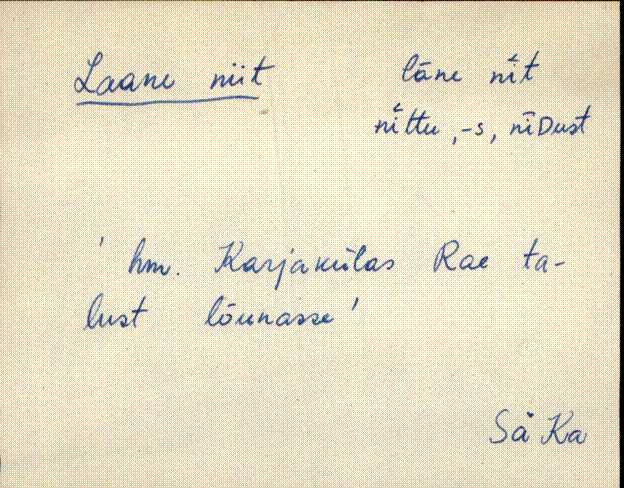 Laane niit lāne nī̆t
nī̆ttu, -s, nīDust
' hm. Karjakülas Rae ta-
lust lõunasse'
Sä Ka